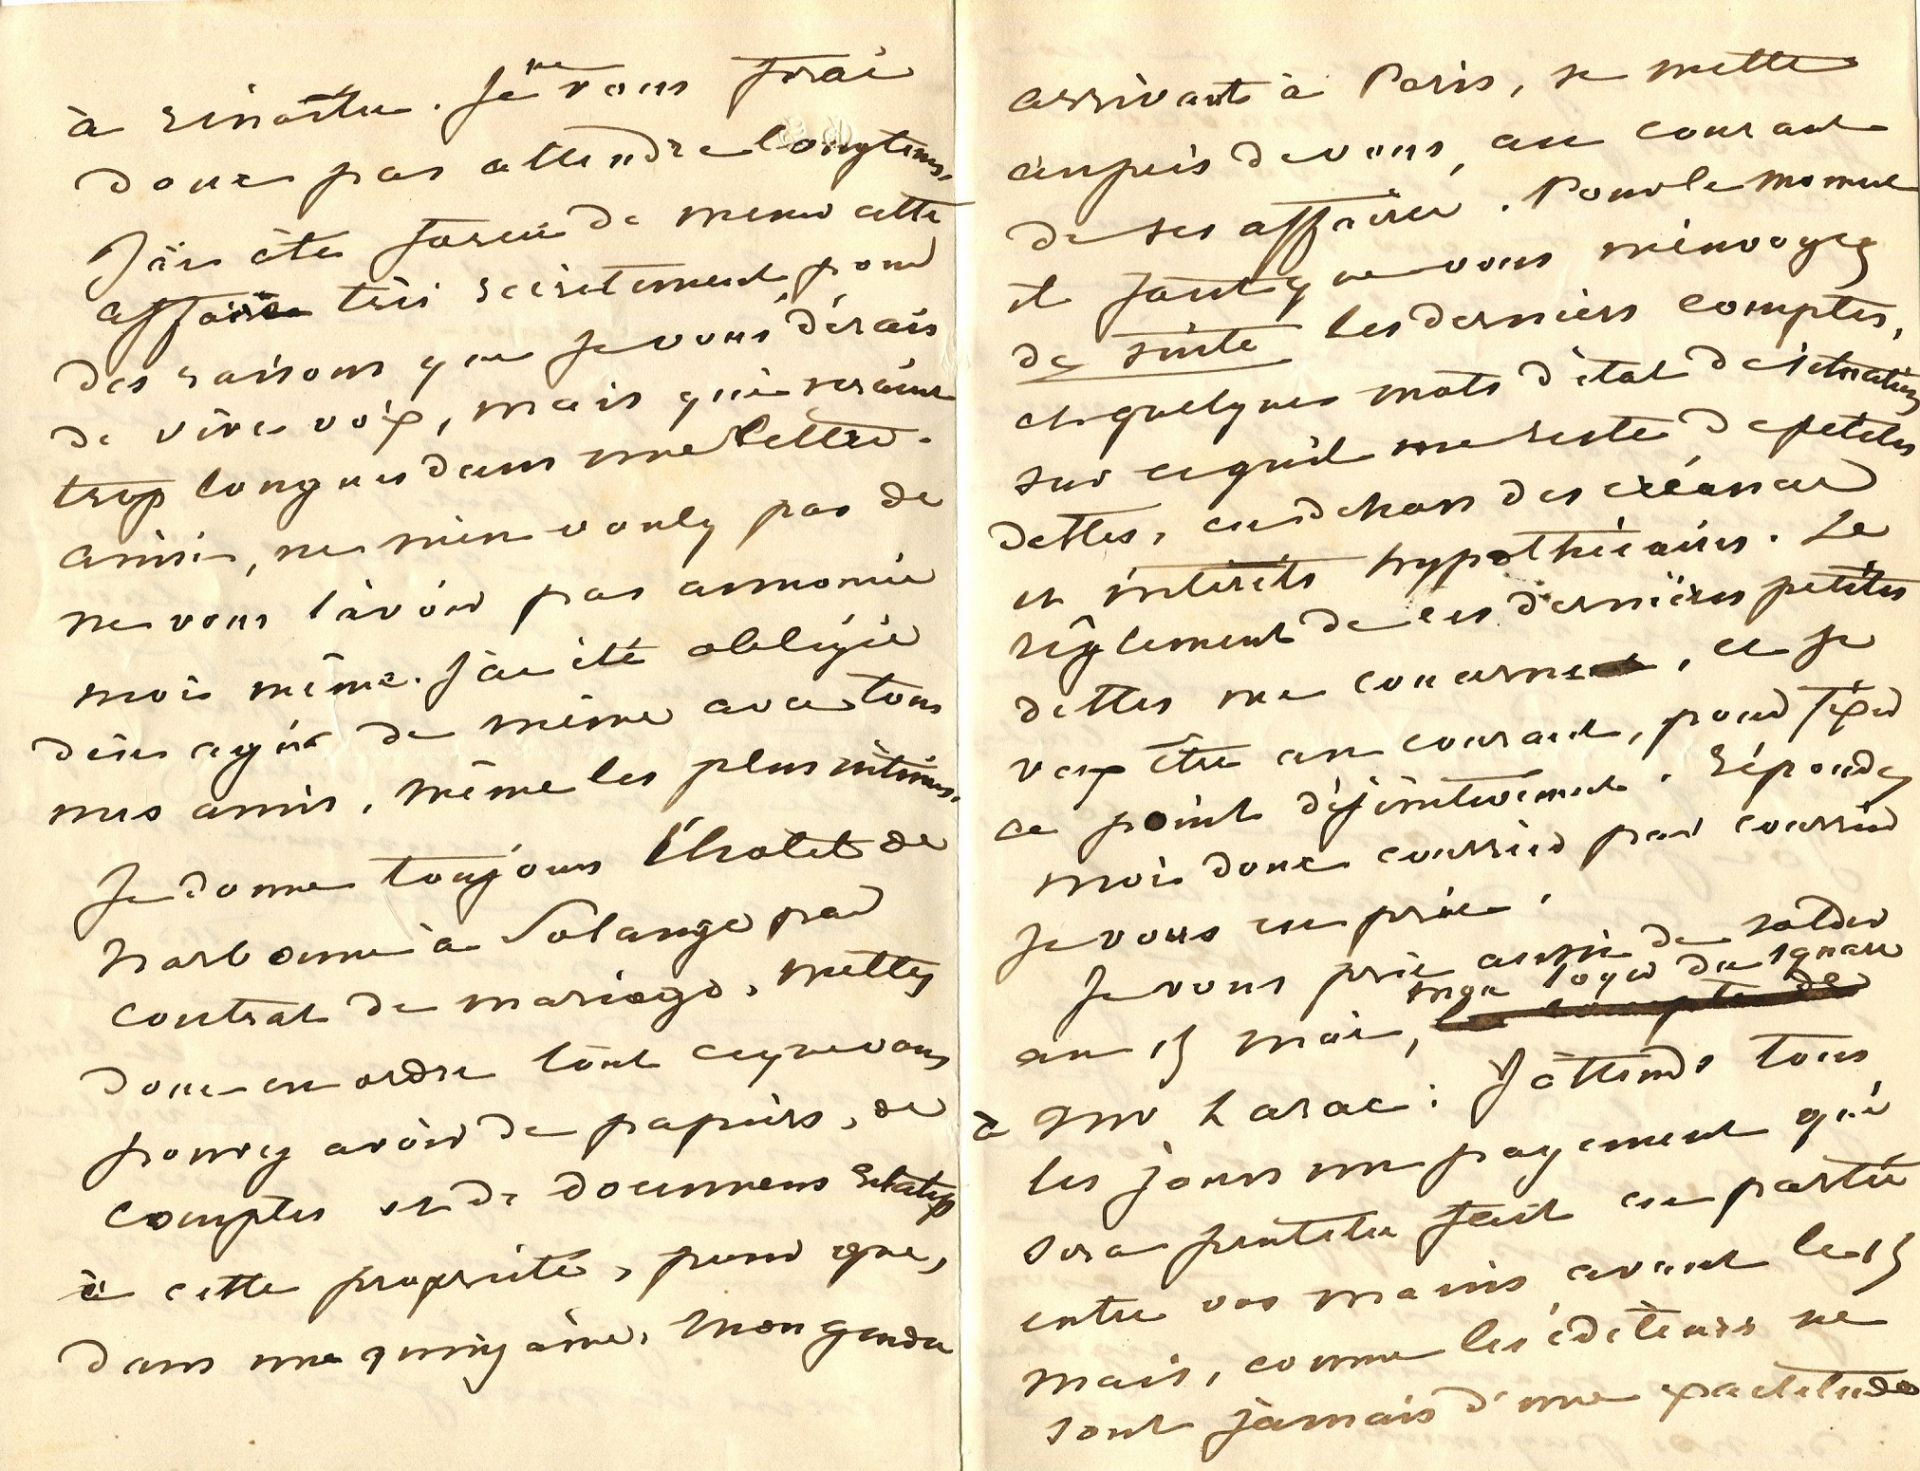 à renaitre. Je ne vous ferai
donc pas attendre longtems.
J'ai été forcée de mener cette
affaire très secrètement, pour
des raisons que je vous dirais
de vive voix, mais qui seraient
trop longues dans une lettre.
ainsi, ne m'en voulez pas de
ne vous l'avoir pas annoncée
moi même. J'ai été obligée
d'en agir de même avec tous
mes amis, même les plus intimes.
Je donne toujours l'hotel de
Narbonne à Solange par
contrat de mariage, mettez
donc en ordre tout ce que vous
pouvez avoir de papiers, de
comptes et de documens relatifs
à cette propriété, pour que,
dans une quinzaine, mon gendre
arrivant à Paris, se mette
auprès de vous, au courant
de ses affaires. Pour le moment
il faut que vous m'envoyez
de suite les derniers comptes,
et quelques mots d'état de situation
sur ce qu'il me reste de petites
dettes, en dehors des créances
et intérêts hypothécaires. Le
règlement de ces dernières petites
dettes me concerne, et je
veux être au courant, pour fixer
ce point définitivement. Répondez
moi donc courrier par courrier
je vous en prie.
Je vous prie aussi de solder
au 15 mai, mon loyer du square
le compte de
à Mr Larac. J'attends tous
les jours un payement qui
sera peutetre fait en partie
entre vos mains avant le 15
mais, comme les éditeurs ne
sont jamais d'une exactitude